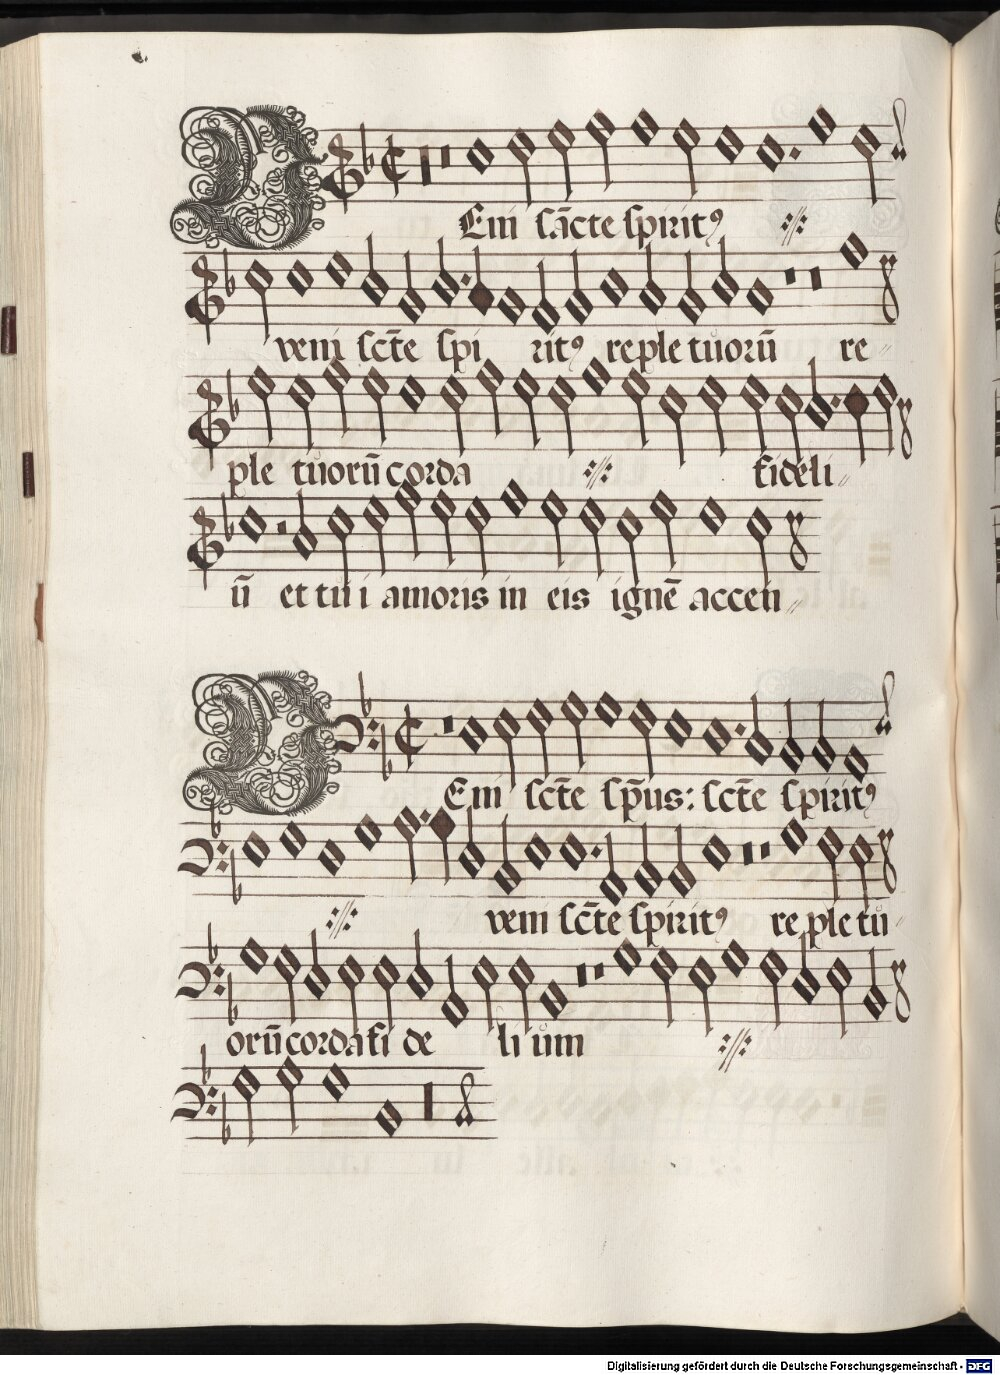 VEni sācte spiritꝰ
veni scte spi ritꝰ reple tuorū re
ple tuorū corda fideli
ū et tu i amoris in eis ignē accen
VEni scte spus: scte spiritꝰ
veni scte spiritꝰ reple tu
orū corda fi de li um
Digitalisierung gefördert durch die Deutsche Forschungsgemeinschaft - DFG